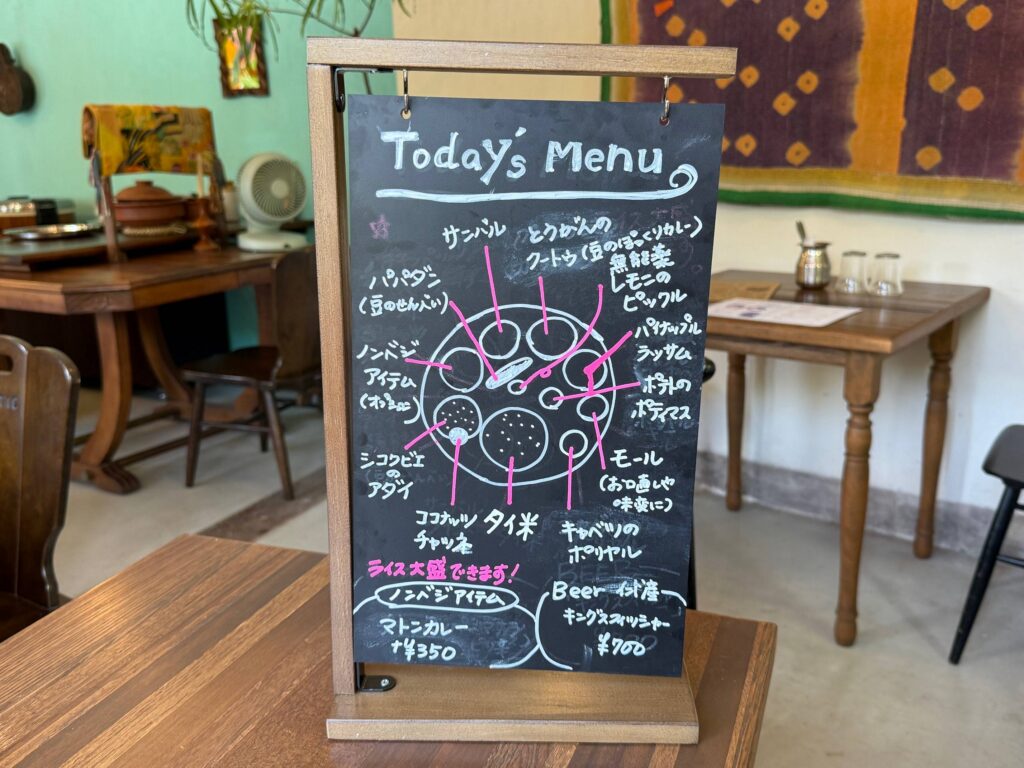 Today's Menu
サンバル
とうがんの
クートゥ(豆のぽっくりカレー)
無農薬
レモンの
ピックル
パパダン
(豆のせんべい)
パイナップル
ラッサム
ノンベジ
アイテム
(オプション)
ポテトの
ポディマス
シコクビエ
の
アダイ
モール
(お口直しや
味変に)
ココナッツ
チャツネ
タイ米
キャベツの
ポリヤル
ライス大盛できます!
ノンベジアイテム
マトンカレー
+¥350
Beer インド産
キングスフィッシャー
¥700